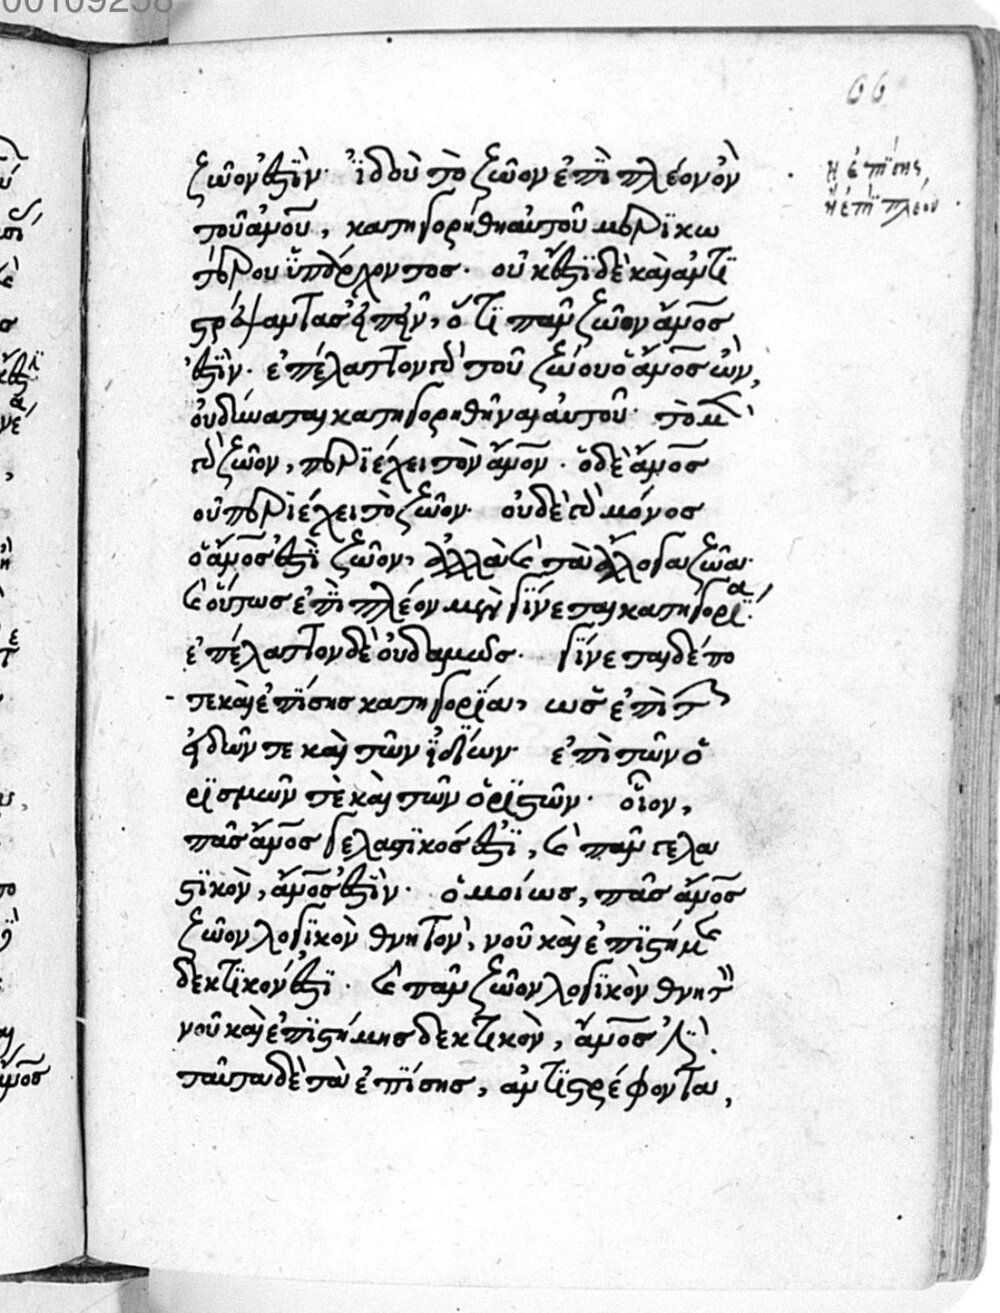 00109258
66
ζῶον ἐστὶν· ἰδοὺ τὸ ζῶον ἐπὶ πλέον ὂν
τοῦ ἀνοῦ, κατηγορήθη αὐτοῦ μερικω
τέρου ὑπάρχοντος· οὐκ ἔστι δὲ καὶ ἀντι
στρέψαντας εἰπεῖν, ὅτι πᾶν ζῶον ἄνος
ἐστὶν· ἐπέλαττον γὰρ τοῦ ζώου ὁ ἄνος ὢν,
οὐ δύναται κατηγορηθῆναι αὐτοῦ· τὸ μὲν
γὰρ ζῶον, περιέχει τὸν ἄνον· ὁ δὲ ἄνος
οὐ περιέχει τὸ ζῶον· οὐδὲ γὰρ μόνος
ὁ ἄνος ἐστὶ ζῶον, ἀλλὰ καὶ τὰ ἄλογα ζῶα·
καὶ οὕτως ἐπὶ πλέον μὲν γίνεται κατηγορία·
ἐπέλαττον δὲ οὐδαμῶς· γίνεται δέ πο
τε καὶ ἐπίσης κατηγορία, ὡς ἐπὶ τῶν
εἰδῶν τε καὶ τῶν ἰδίων· ἐπὶ τῶν ὁ
ρισμῶν τὲ καὶ τῶν ὁριστῶν· οἷον,
πᾶς ἄνος γελαστικός ἐστι, καὶ πᾶν γελα
στικὸν, ἄνος ἐστὶν· ὁμοίως, πᾶς ἄνος
ζῶον λογικὸν θνητὸν, νοῦ καὶ ἐπιστήμης
δεκτικόν ἐστι· καὶ πᾶν ζῶον λογικὸν θνητὸν
νοῦ καὶ ἐπιστήμης δεκτικὸν, ἄνος ἐστὶ·
ταῦτα δὲ τὰ ἐπίσης, ἀντιστρέφονται,
ἢ ἐπίσης,
ἢ ἐπὶ πλέον.